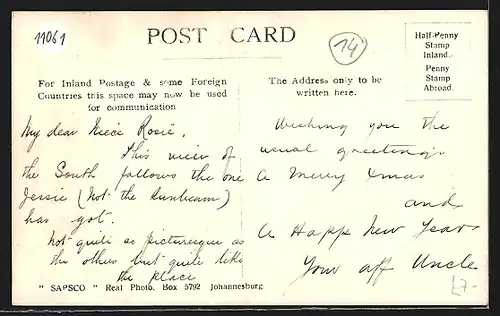 11061
POST CARD
14
Half-Penny
Stamp
Inland.
Penny
Stamp
Abroad.
For Inland Postage & some Foreign
Countries this space may now be used
for communication
The Address only to be
written here.
My dear Niece Rosie,
This view of
the South follows the one
Jessie (Not the Sunbeam)
has got.
Not quite as picturesque as
the others but quite like
the place
Wishing you the
usual greetings
A Merry Xmas
and
A Happy New Year
Your aff Uncle
" SAPSCO " Real Photo. Box 5792 Johannesburg
£7-